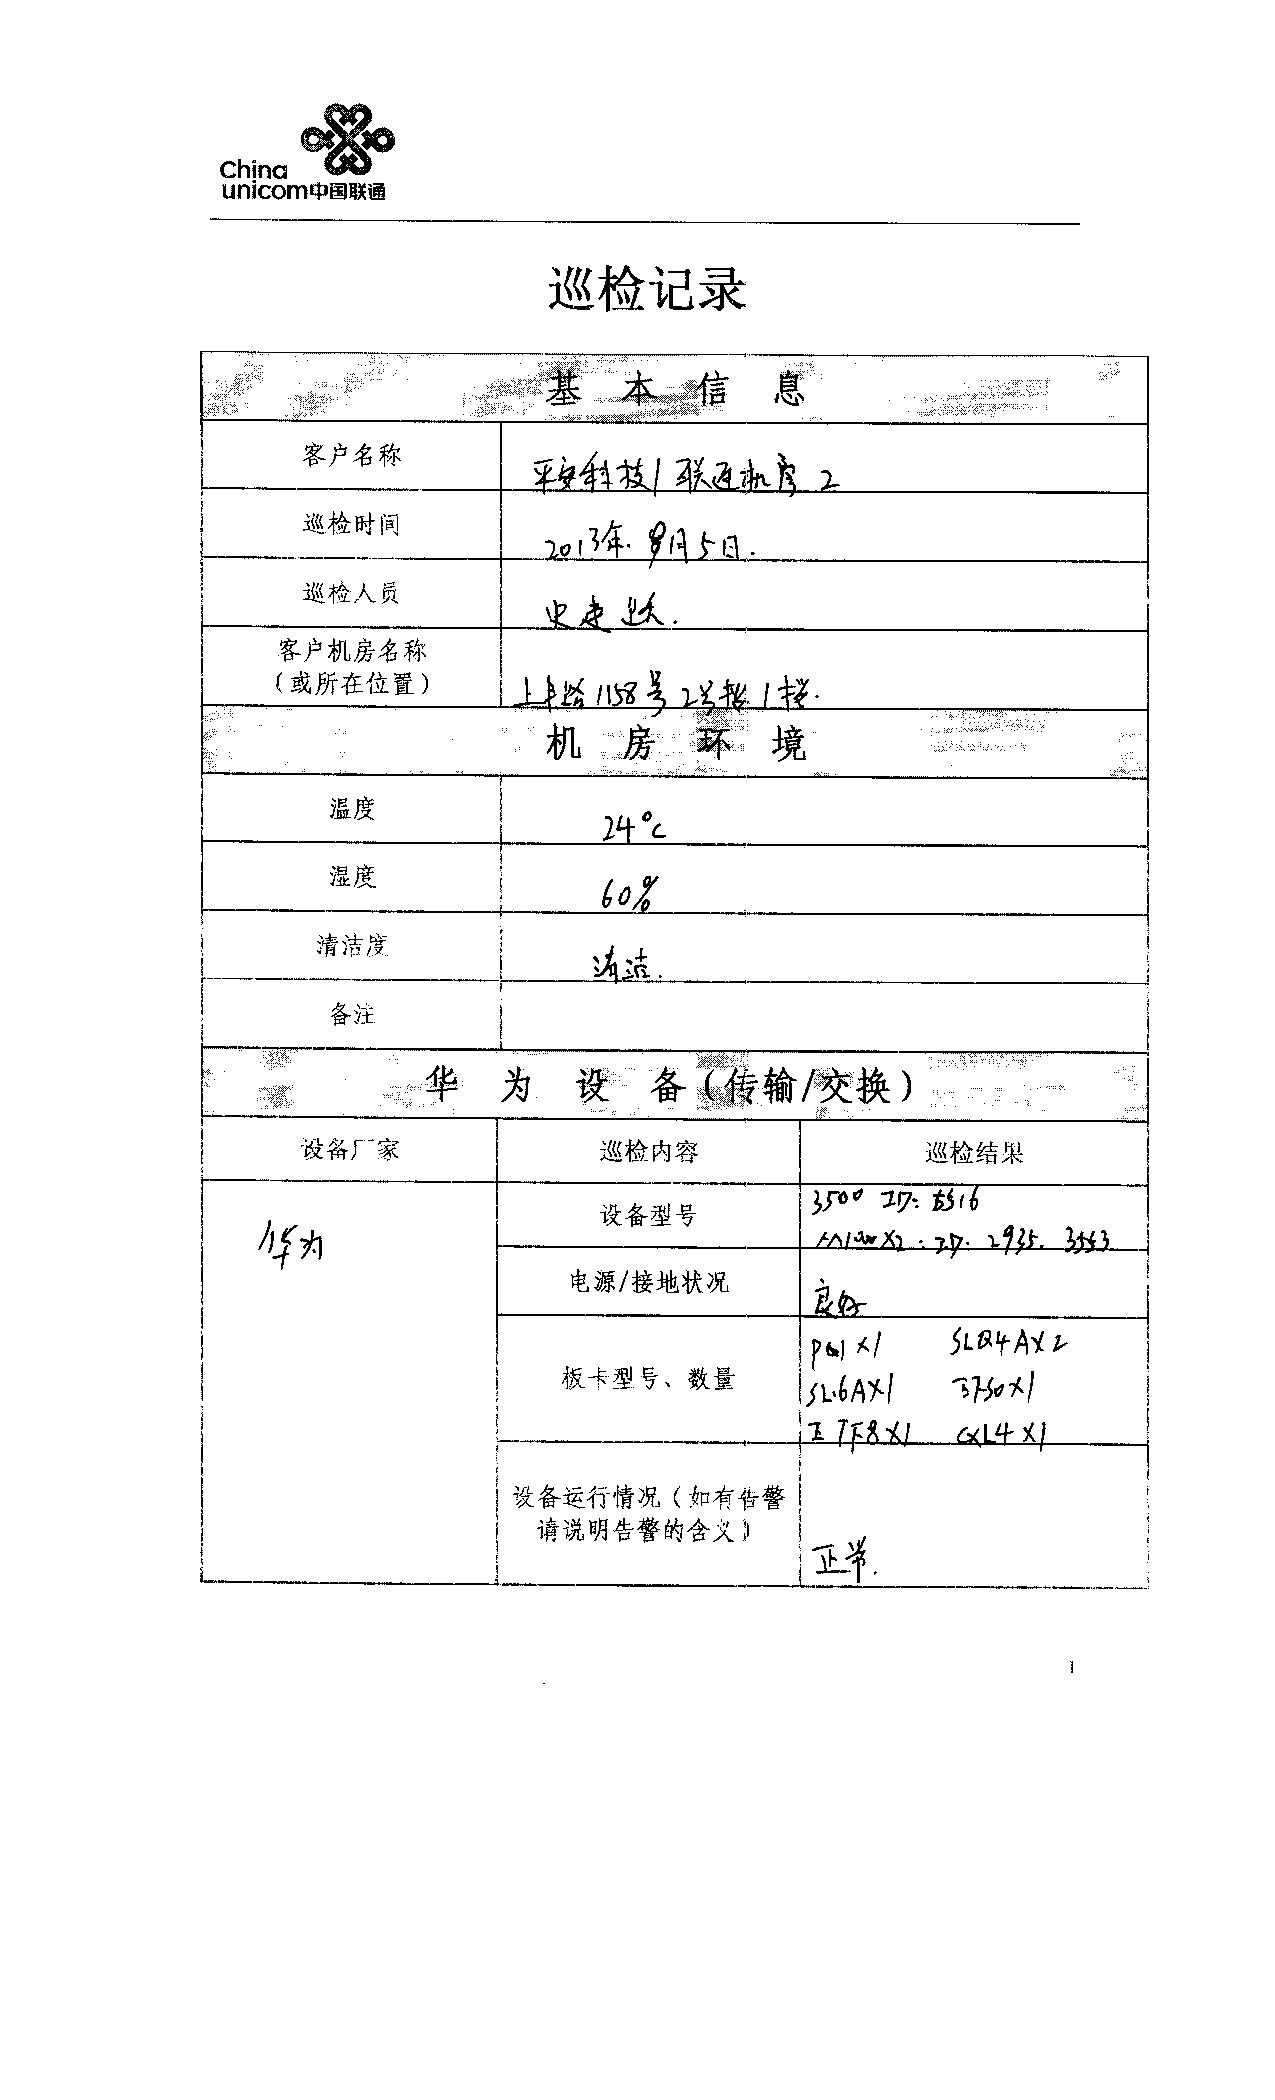 China
unicom中国联通
巡检记录
基 本 信 息
客户名称 平安科技/联通机房2
巡检时间 2013年.8月5日.
巡检人员 史 跃.
客户机房名称
(或所在位置) 上丰路1158号2号楼1楼.
机 房 环 境
温度 24°C
湿度 60%
清洁度 清洁.
备注
华 为 设 备(传输/交换)
设备厂家 巡检内容 巡检结果
华为
设备型号 3500 ID: 6516
X2: ID: 2935. 3553
电源/接地状况 良好
板卡型号、数量 PQ1X1 SLQ4AX2
X1 X1
X1 GXL4X1
设备运行情况(如有告警
请说明告警的含义) 正常.
1